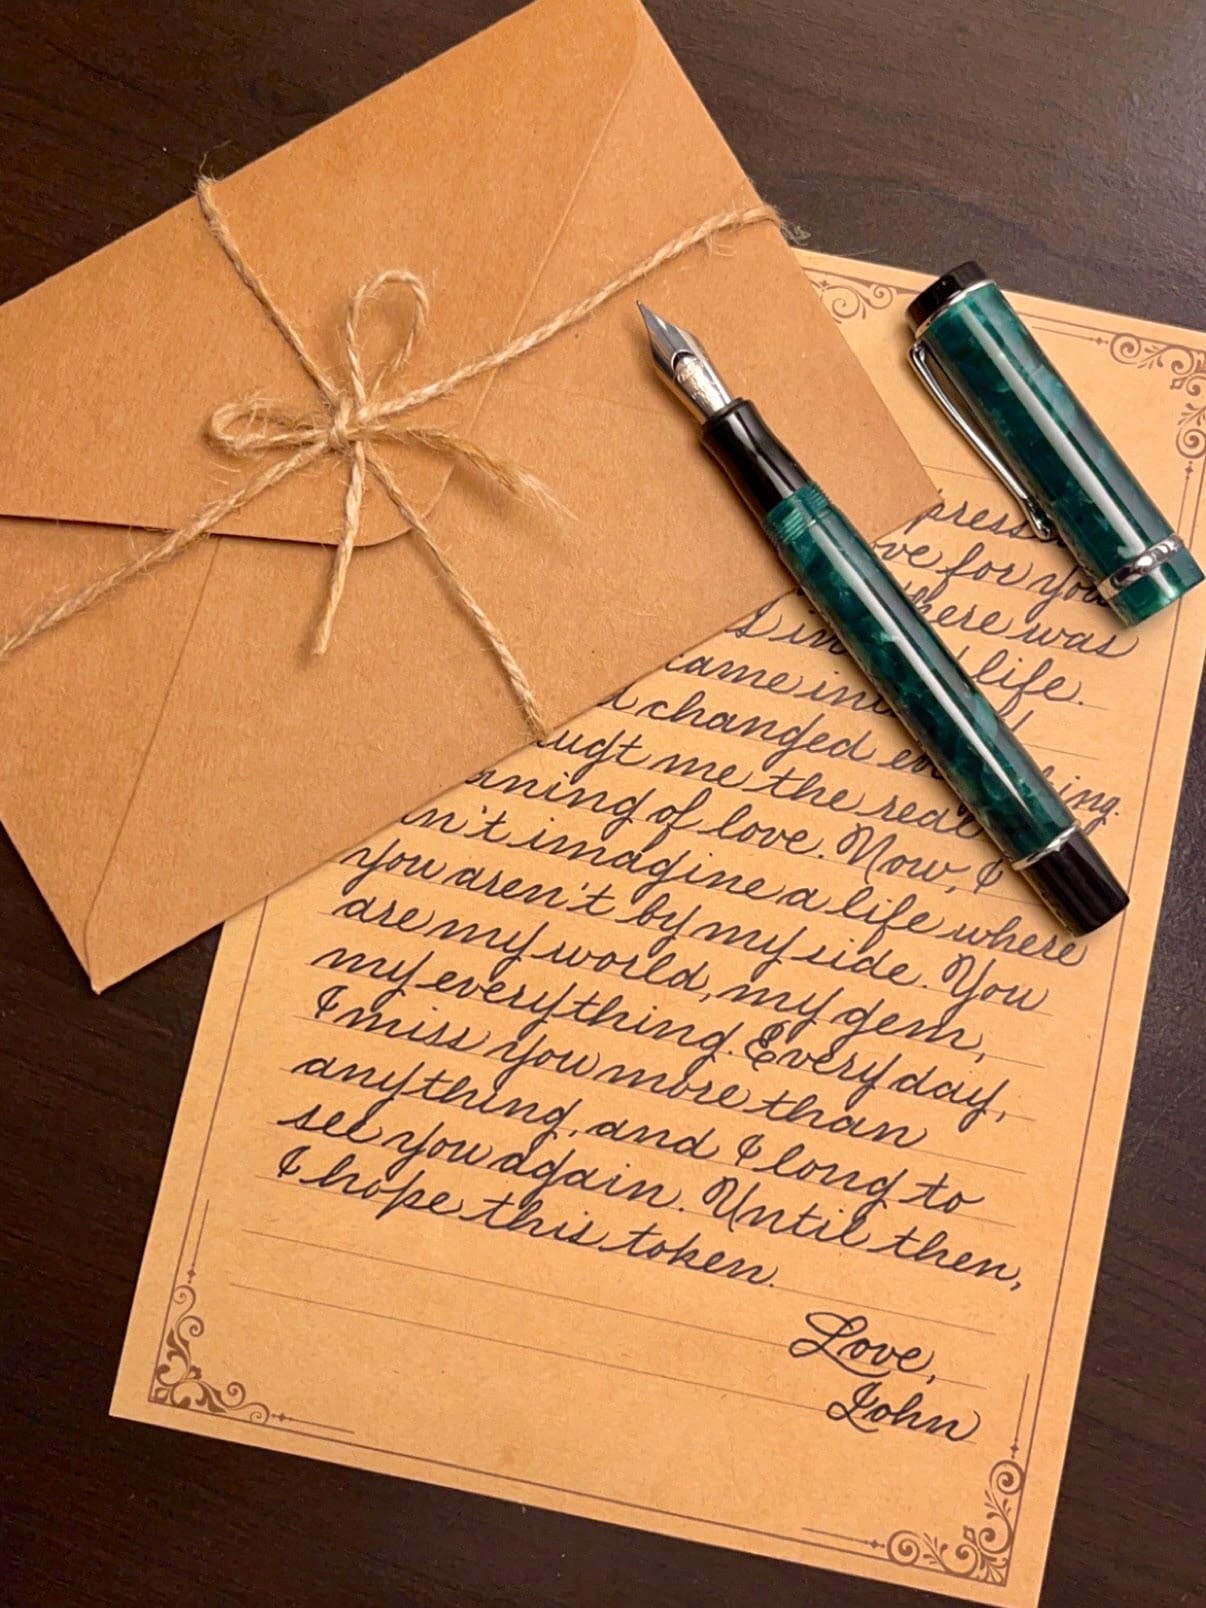 press
ve for you
here was
s in life.
came in
changed
ugt me the real
ning of love. Now, I
n't imagine a life where
you aren't by my side. You
are my world, my gem,
my everything. Everyday,
I miss you more than
anything, and I long to
see you again. Until then,
I hope this token.
Love,
John